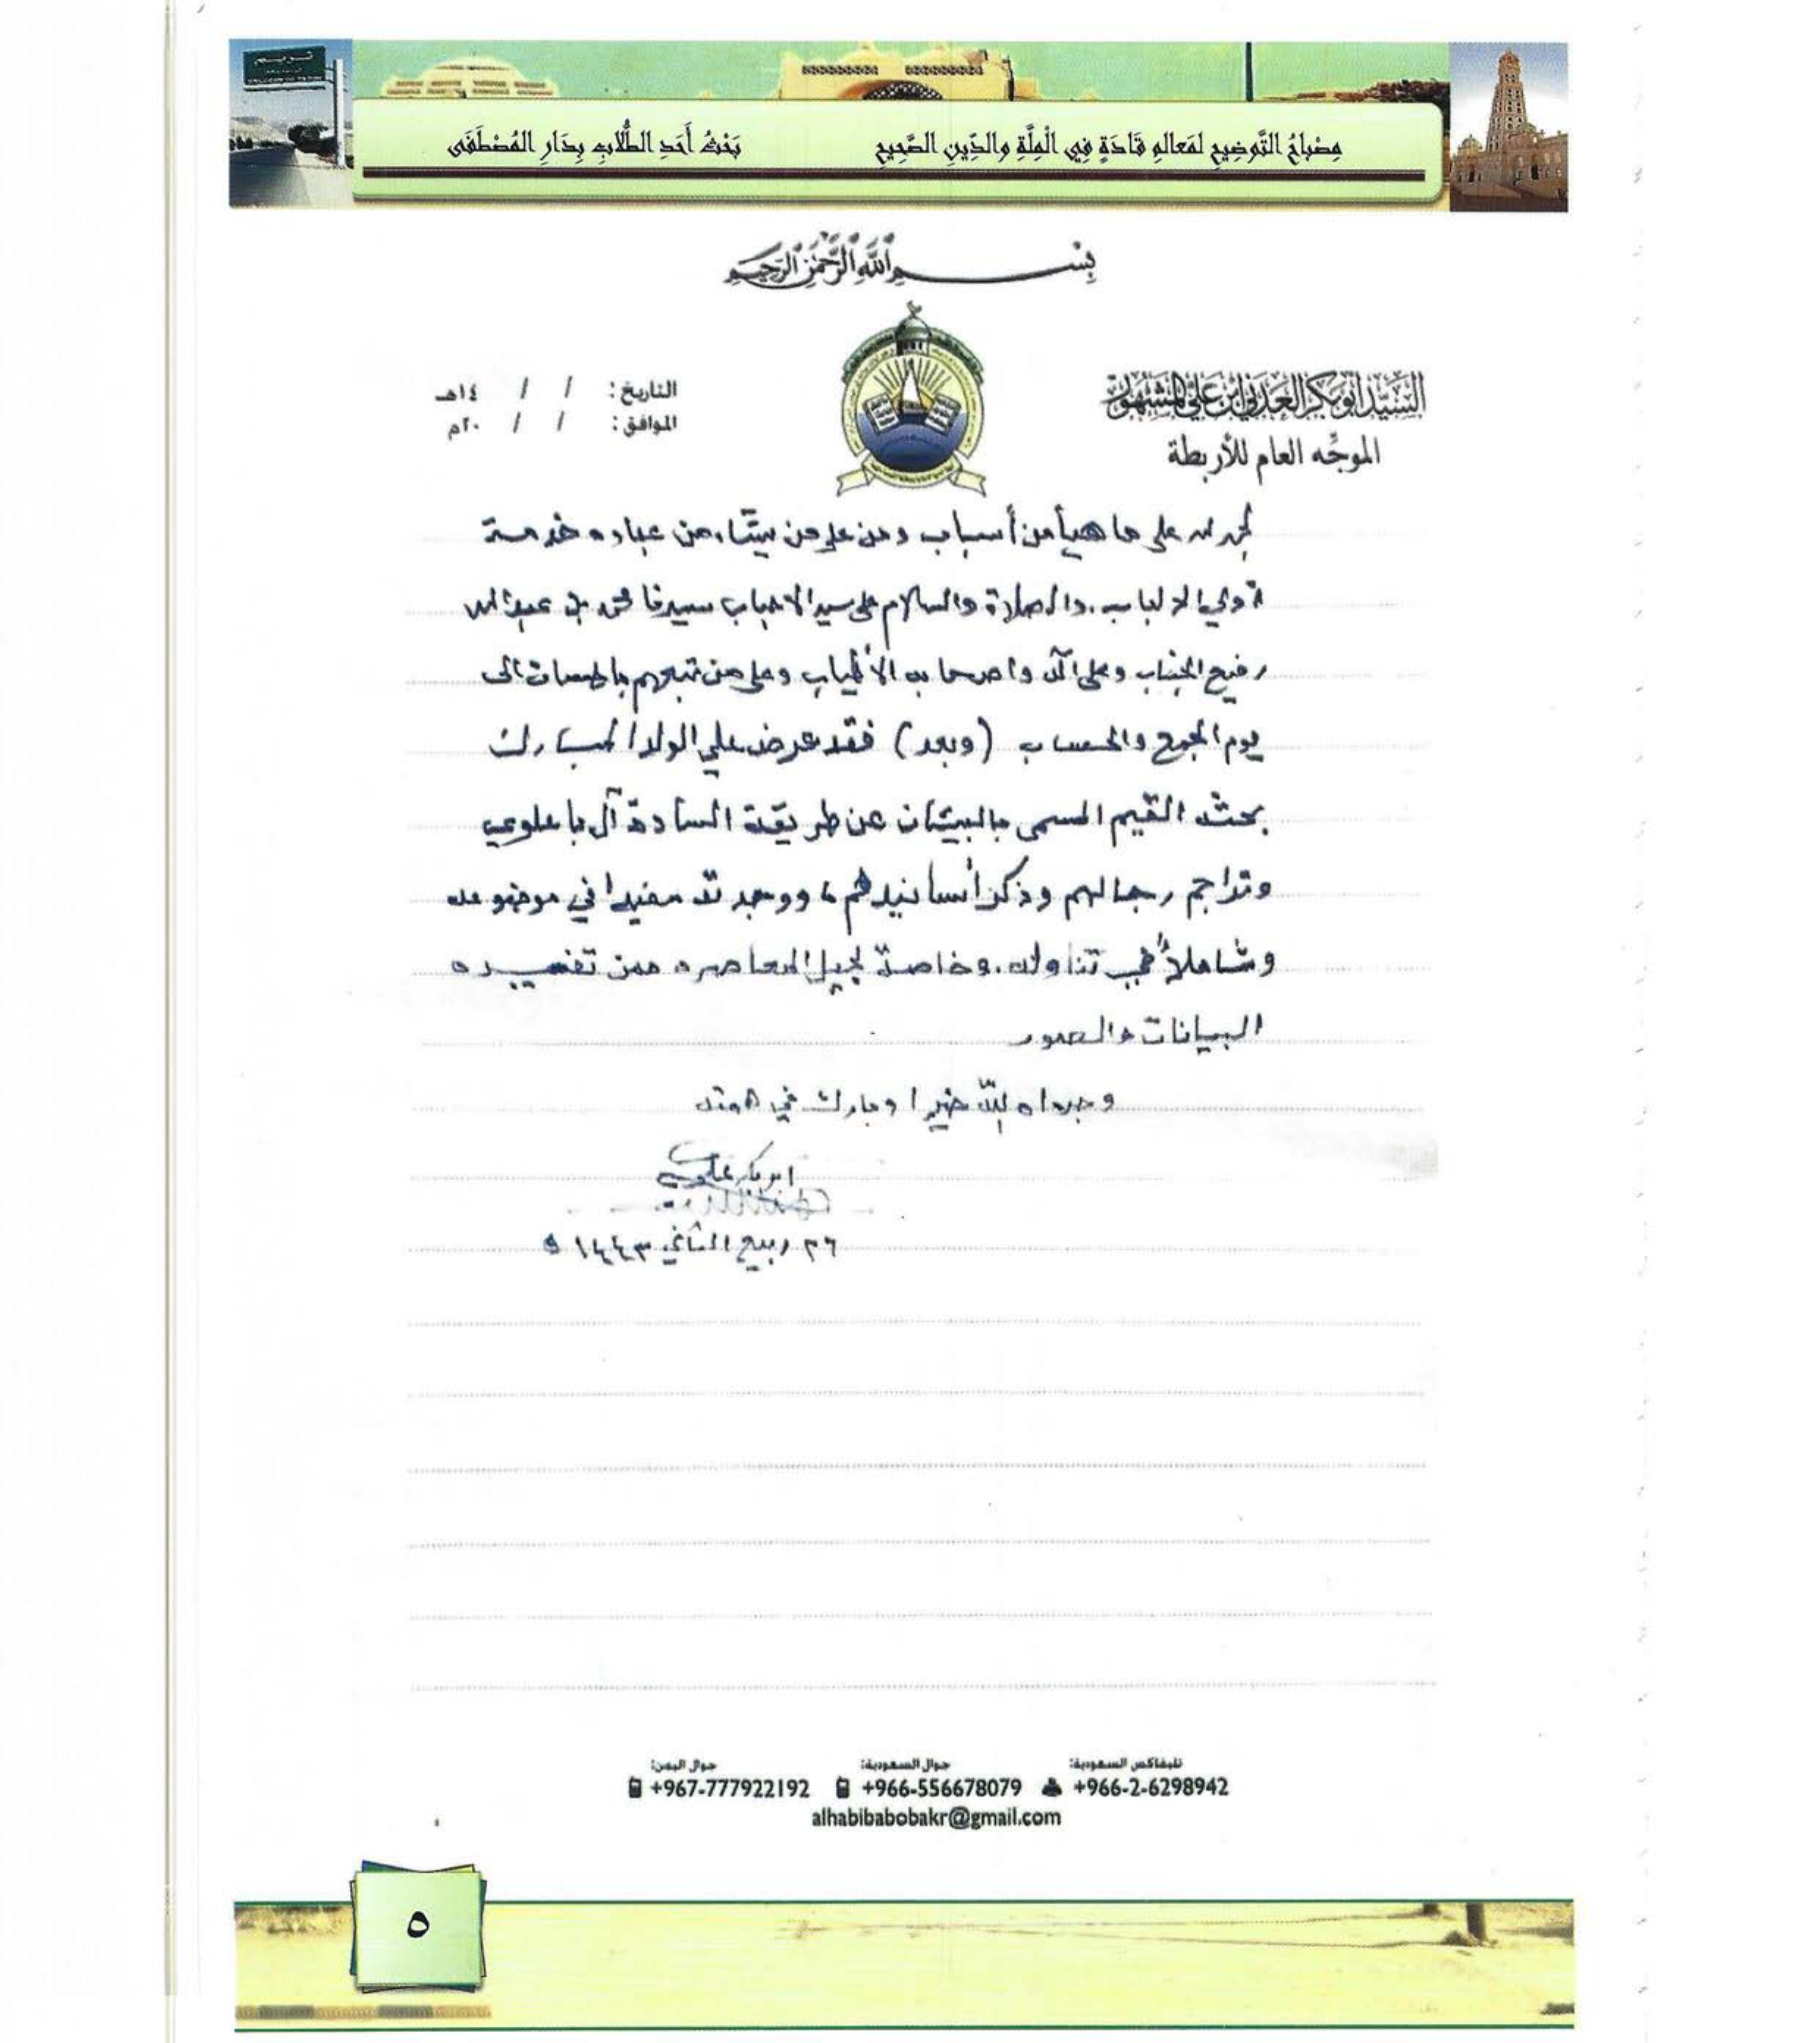 مِصْبَاحُ التَّوضِيحِ لمَعالمِ قَادَةٍ فِي الْمِلَّةِ والدِّينِ الصَّحِيحِ
بَحْثُ أَحَدِ الطُّلَّابِ بِدَارِ المُصْطَفَى
بِسْمِ اللَّهِ الرَّحْمَنِ الرَّحِيمِ
السَّيِّد أبوبكر العَدَني ابن عَلي المشْهُور
الموجِّه العام للأربطة
التاريخ: / / ١٤هـ
الموافق: / / ٢٠م
الحمد لله على ما هيأ من أسباب ومن على من يشاء من عباده خدمة
أولي الالباب. والصلاة والسلام على سيد الاحباب سيدنا محمد بن عبدالله
رفيع الجناب وعلى آله واصحابه الأطياب وعلى من تبعهم باحسان الى
يوم الجمع والحساب (وبعد) فقد عرض علي الولد المبارك
بحثه القيم المسمى بالبيان عن طريقة السادة آل باعلوي
وتراجم رجالهم وذكر أسانيدهم، ووجدته مفيدا في موضوعه
وشاملاً في تناوله. وخاصة لجيل المعاصره ممن تفيده
البيانات والصور
وجزاه اللّه خيرا وبارك في همته
ابوبكر علي
٢٦ ربيع الثاني ١٤٤٣ ه
تليفاكس السعودية: جوال السعودية: جوال اليمن:
+966-2-6298942 +966-556678079 +967-777922192
alhabibabobakr@gmail.com
٥